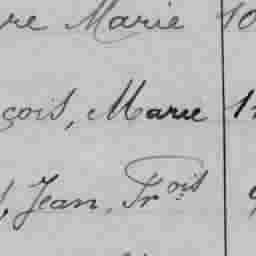 re Marie 10
çois, Marie 1
, Jean, Frois